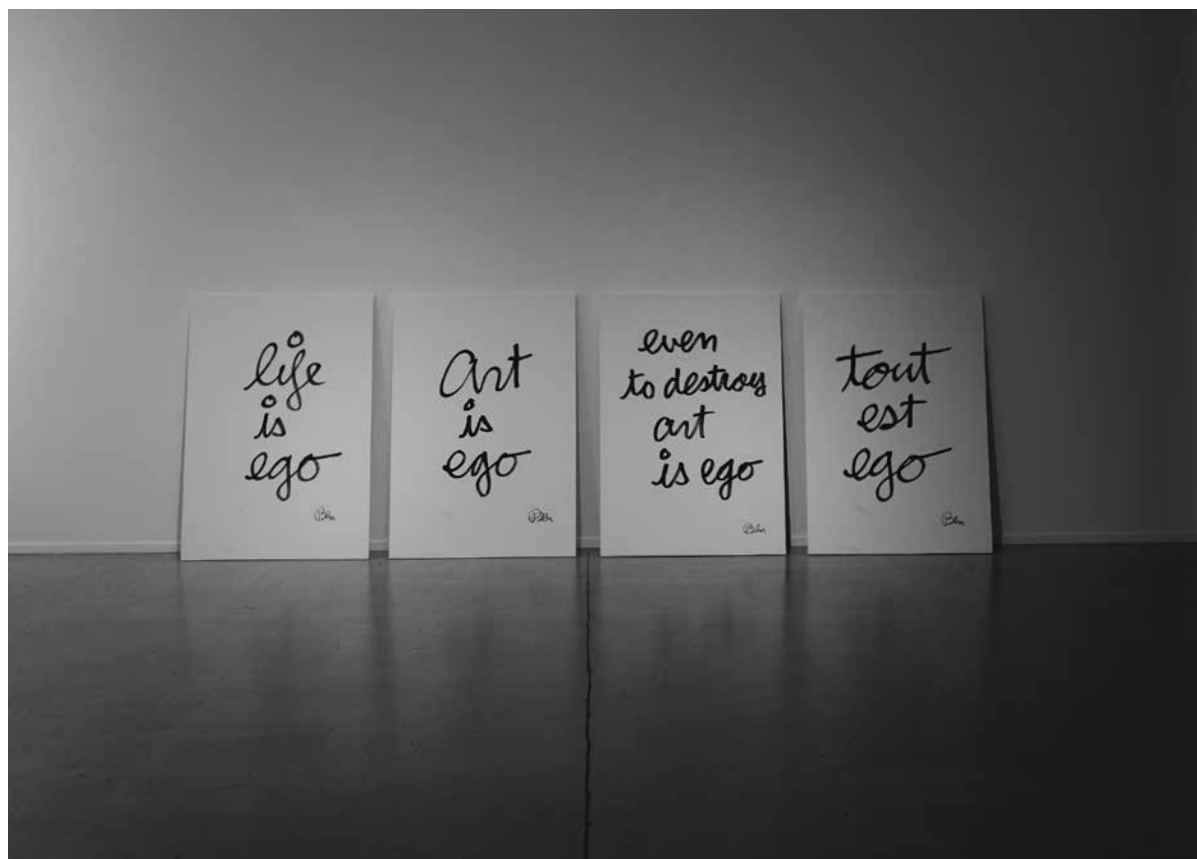 life
is
ego
Ben
Art
is
ego
Ben
even
to destroy
art
is ego
Ben
tout
est
ego
Ben